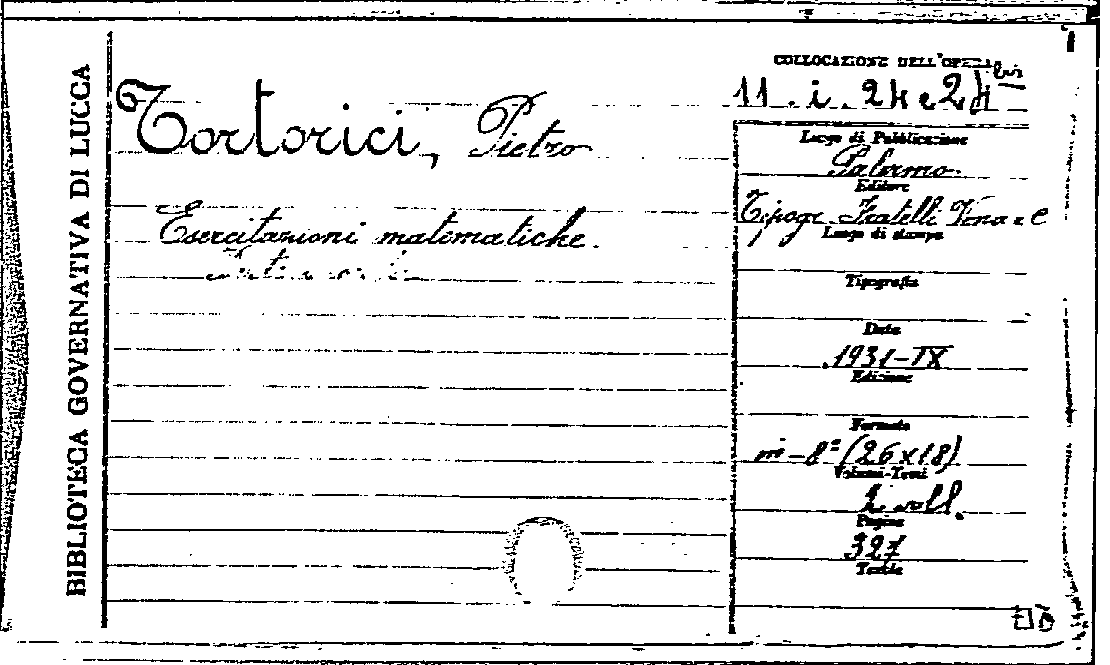 BIBLIOTECA GOVERNATIVA DI LUCCA
Tortorici, Pietro
Esercitazioni matematiche.
COLLOCAZIONE DELL'OPERA
11. i. 24 e 24 bis
Luogo di Pubblicazione
Palermo.
Editore
Tipogr. Fratelli Vena e C
Luogo di stampa
Tipografia
Data
1931-IX
Edizione
Formato
in-8° (26x18)
Volumi-Tomi
2 voll.
Pagine
327
Tavole